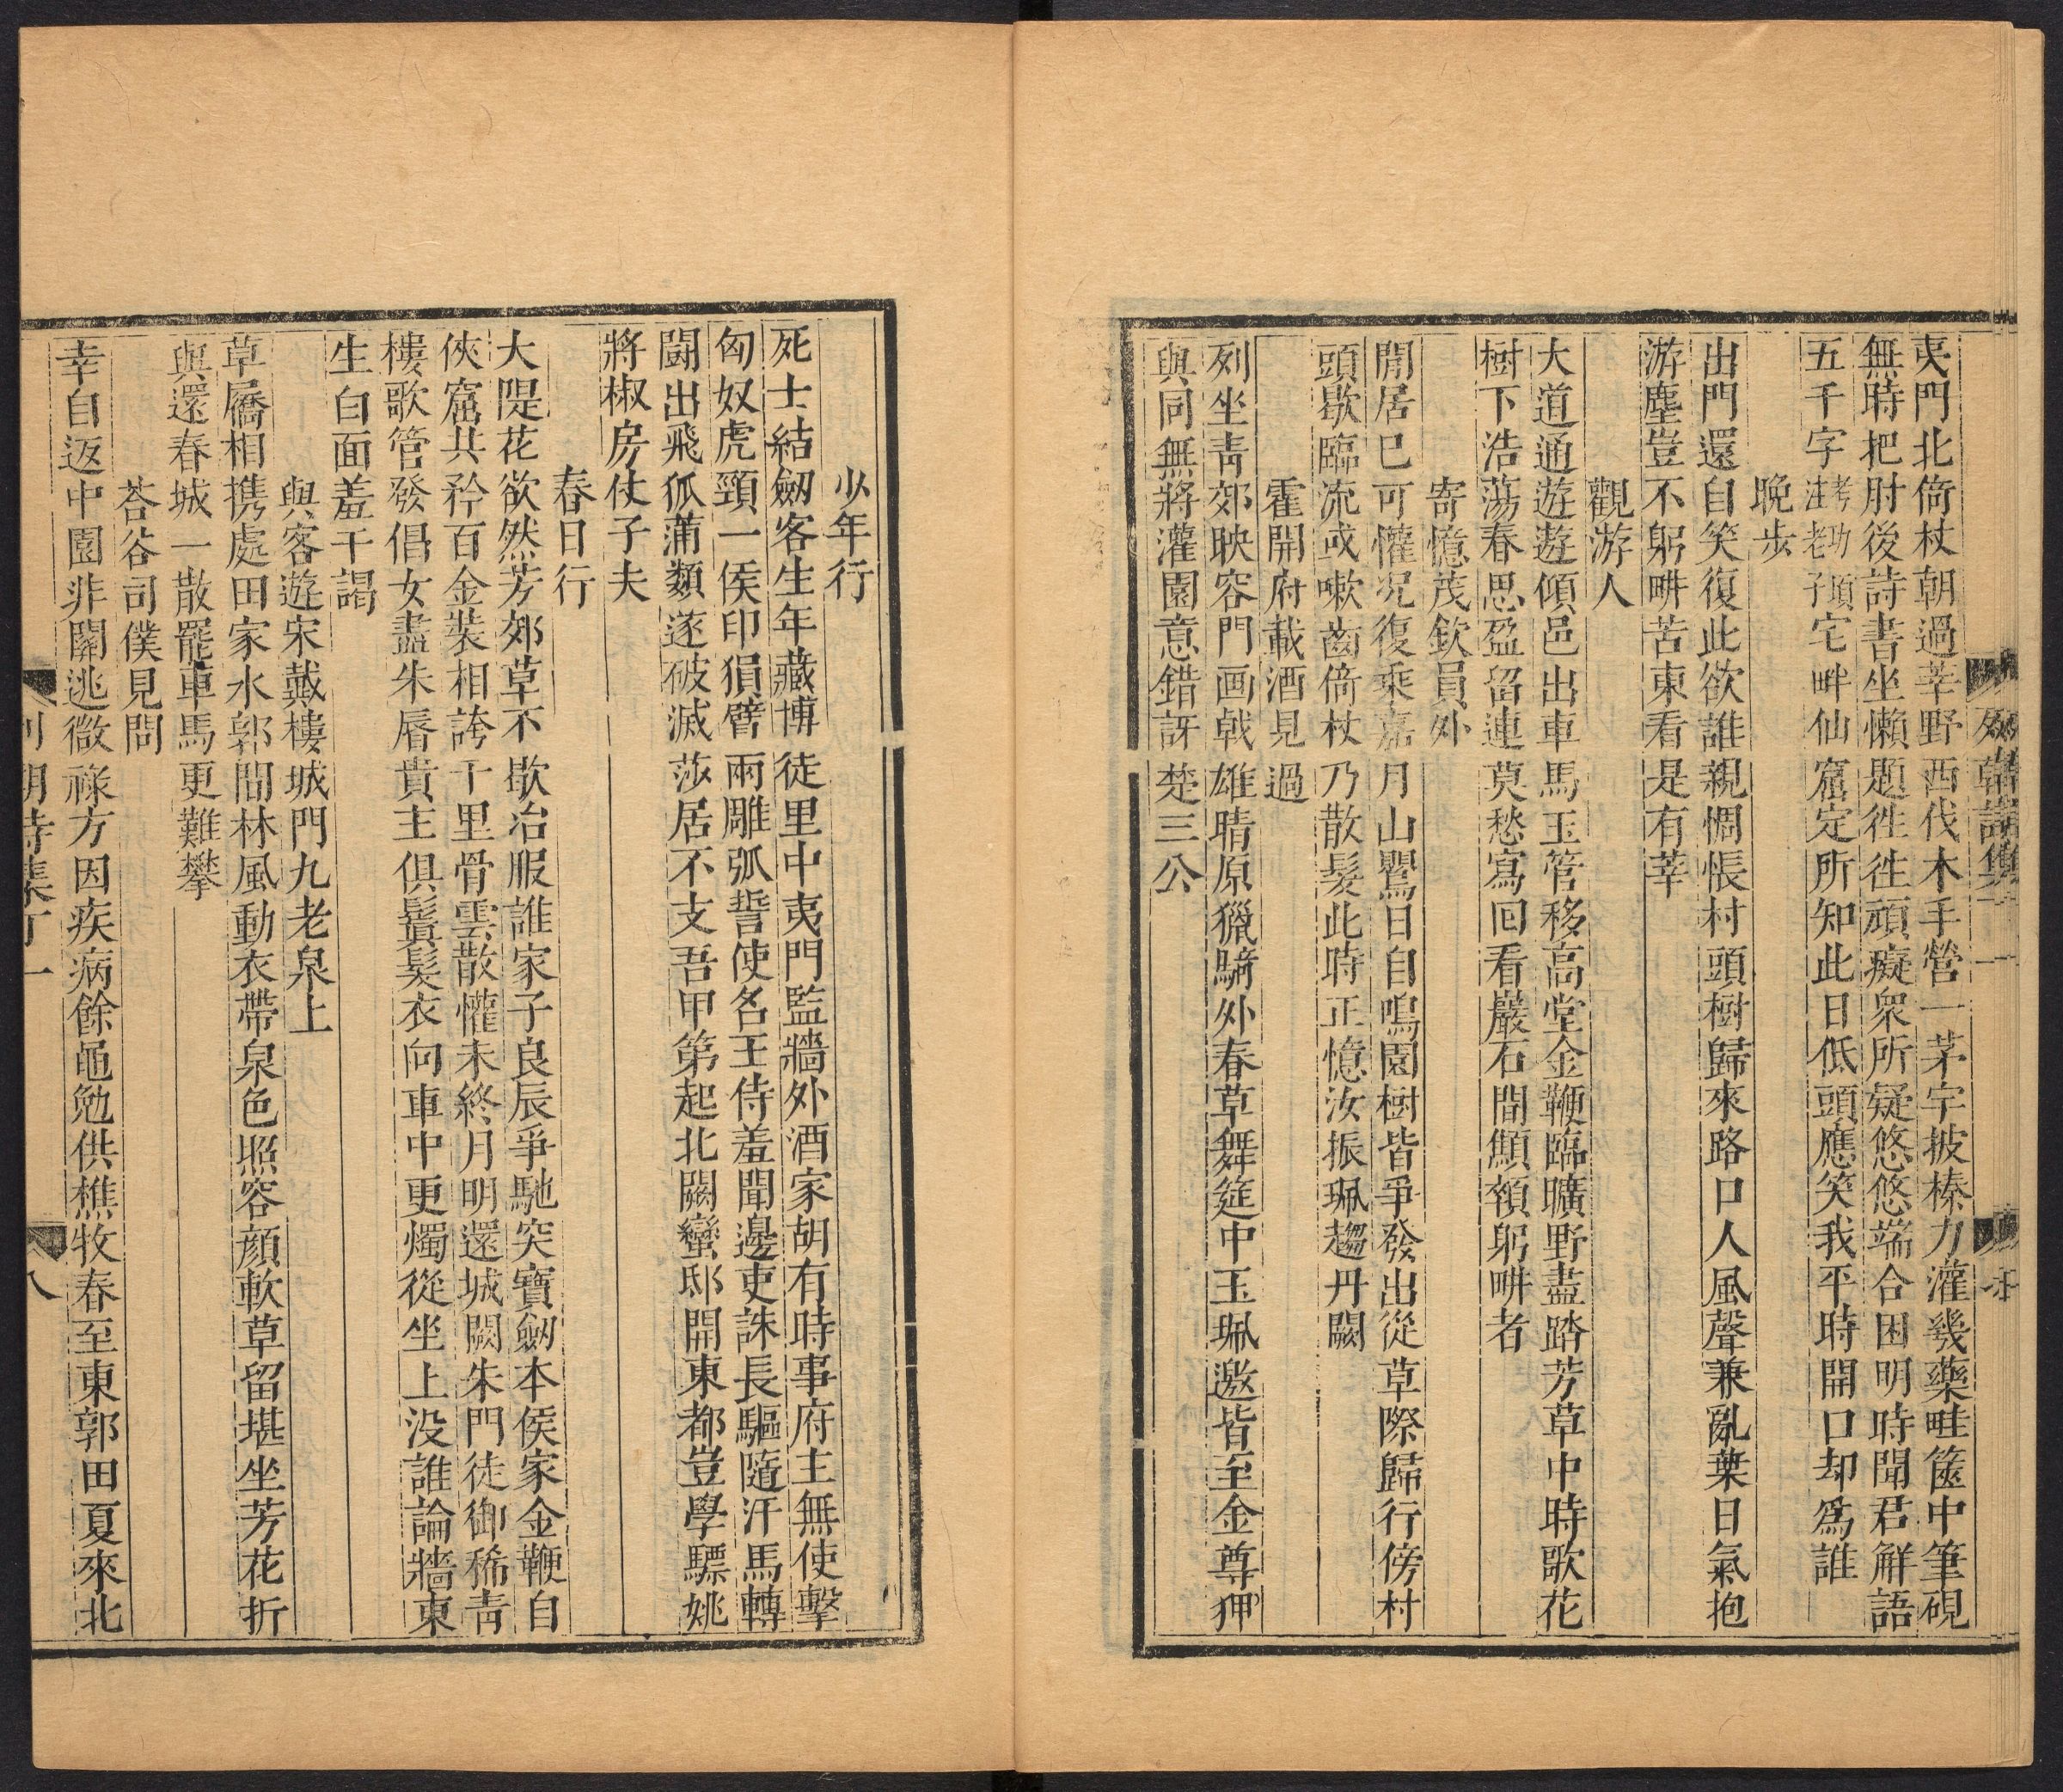 夷門北倚杖朝過莘野西伐木手營一茅宇披榛力灌幾藥畦篋中筆硯
無時把肘後詩書坐懶題徃徃頑癡衆所疑悠悠端合困明時聞君解語
五千字考功項注老子宅畔仙窟定所知此日低頭應笑我平時開口却爲誰
晚歩
出門還自笑復此欲誰親惆悵村頭樹歸來路口人風聲兼亂葉日氣抱
游塵豈不躬畊苦東看是有莘
觀游人
大道通遊遊傾邑出車馬玉管移高堂金鞭臨曠野盡踏芳草中時歌花
樹下浩蕩春思盈留連莫愁寫回看巖石間顦顇躬畊者
寄憶茂欽員外
閒居已可懽况復乘嘉月山鸎日自鳴園樹皆爭發出從草際歸行傍村
頭歇臨流或嗽齒倚杖乃散髮此時正憶汝振珮趨丹闕
霍開府載酒見過
列坐靑郊映容門画戟雄晴原獵騎外春草舞筵中玉珮邀皆至金尊狎
與同無將灌園意錯訝楚三公
少年行
死士結劒客生年藏博徒里中夷門監牆外酒家胡有時事府主無使擊
匈奴虎頸一侯印狷臂兩雕弧誓使名王侍羞聞邊吏誅長驅隨汗馬轉
鬭出飛狐蒲類遂破滅莎居不支吾甲第起北闕蠻邸開東都豈學驃姚
將椒房仗子夫
春日行
大隄花欲然芳郊草不歇冶服誰家子良辰爭馳突寶劒本侯家金鞭自
俠窟共矜百金裝相誇千里骨雲散懽未終月明還城闕朱門徒御稀靑
樓歌管發倡女盡朱脣貴主俱鬒髮衣向車中更燭從坐上没誰論牆東
生白面羞干謁
與客遊宋戴樓城門九老泉上
草屩相携處田家水郭間林風動衣帶泉色照容顔軟草留堪坐芳花折
與還春城一散罷車馬更難攀
荅谷司僕見問
幸自返中園非關逃微祿方因疾病餘黽勉供樵牧春至東郭田夏來北
八